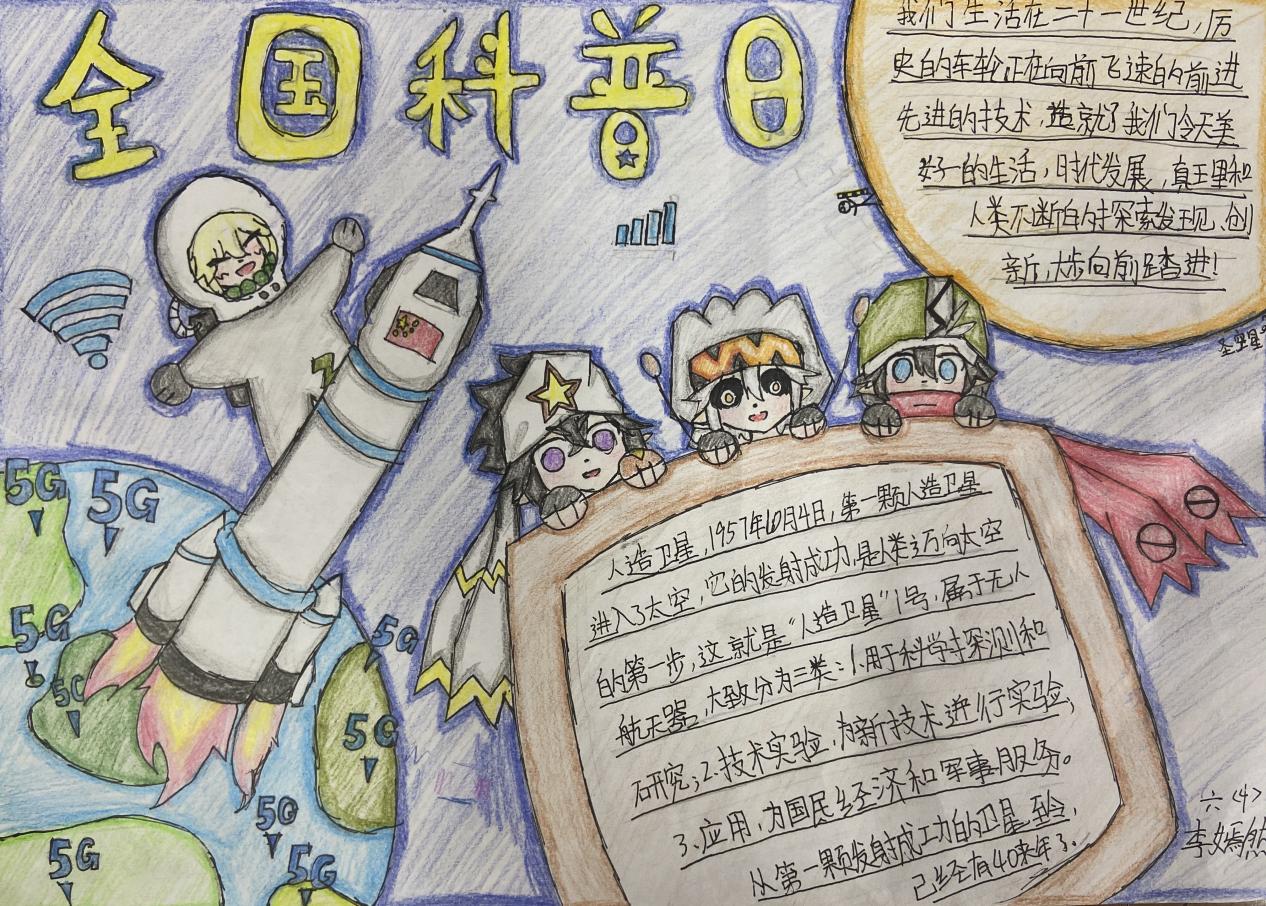 全国科普日
我们生活在二十一世纪,历
史的车轮正在向前飞速的前进
先进的技术,造就了我们今天美
好的生活,时代发展,真王里和
人类不断的探索发现、创
新,大步向前踏进!
人造卫星,1957年10月4日,第一颗人造卫星
进入了太空,它的发射成功,是人类迈向太空
的第一步,这就是“人造卫星”1号,属于无人
航天器,大致分为三类:1.用于科学探测和
研究;2.技术实验,为新技术进行实验;
3.应用,为国民经济和军事服务。
从第一颗发射成功的卫星至今,
已经有40来年了.
5G
5G
5G
5G
5G
5G
5G
5G
5G
六<4>
李嫣然